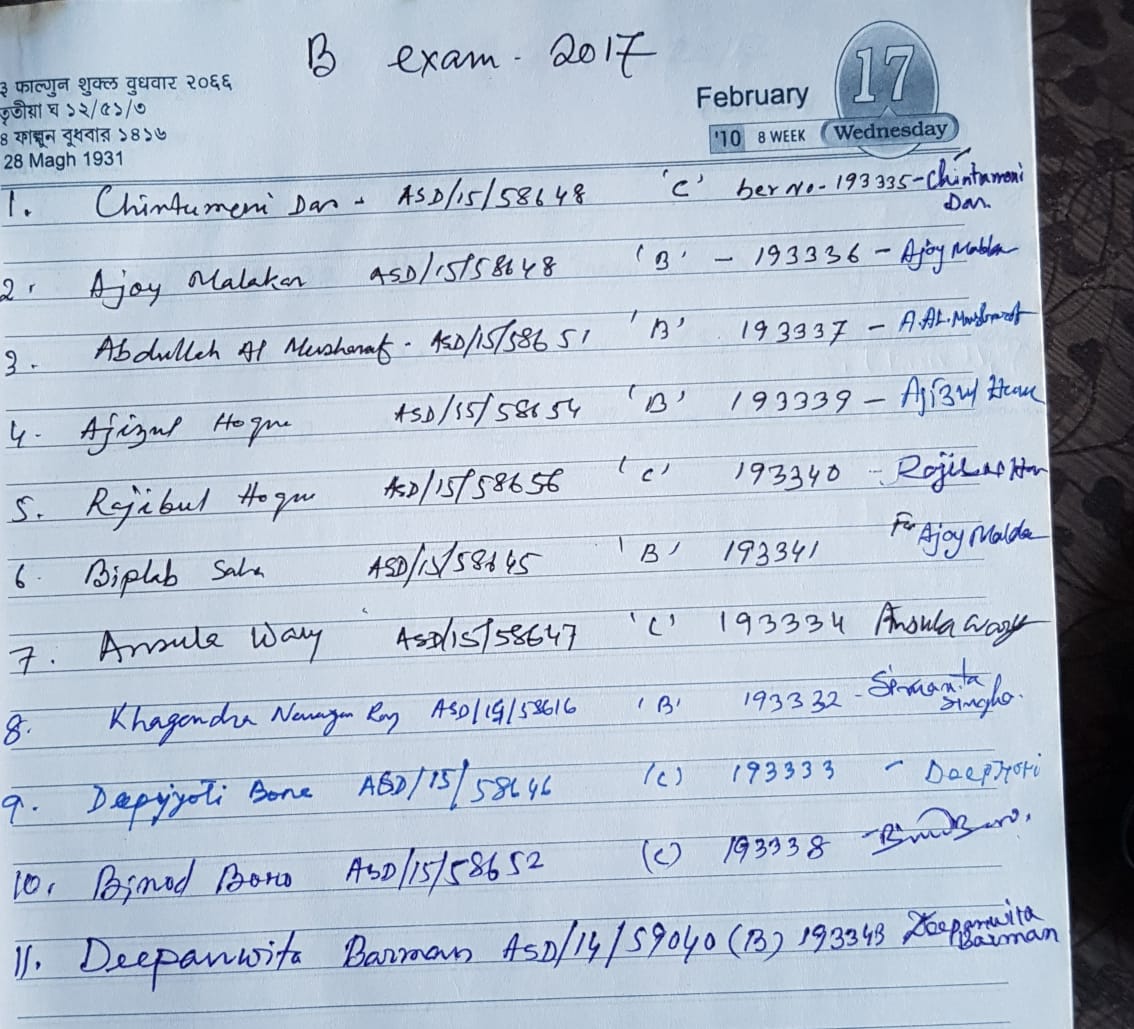 B exam - 2017
३ फाल्गुन शुक्ल वुधवार २०६६
তৃতীয়া ঘ ১২/৫১/০
৪ ফাল্গুন বুধবার ১৪১৬
28 Magh 1931
February 17
'10 8 WEEK Wednesday
1. Chintumeni Das - ASD/15/58648 'C' ber No- 193335 - Chintumoni Das.
2. Ajoy Malakar ASD/15/58648 'B' - 193336 - Ajoy
3. Abdullah Al Musharaf - ASD/15/58651 'B' 193337 - A. Al.
4. Ajizul Hoque ASD/15/58654 'B' 193339 - Ajizul
5. Rajibul Hoque ASD/15/58656 'C' 193340 -
6. Biplab Saha ASD/15/58645 'B' 193341 For Ajoy
7. Ansula Wary ASD/15/58647 'C' 193334 Ansula Wary
8. Khagendra Narayan Roy ASD/14/58616 'B' 193332 - Simanta Singha.
9. Depjyoti Bora ASD/15/58646 (C) 193333 - Deepjyoti
10. Binod Boro ASD/15/58652 (C) 193338 -
11. Deepanwita Barman ASD/14/59040 (B) 193343 Deepanwita Barman